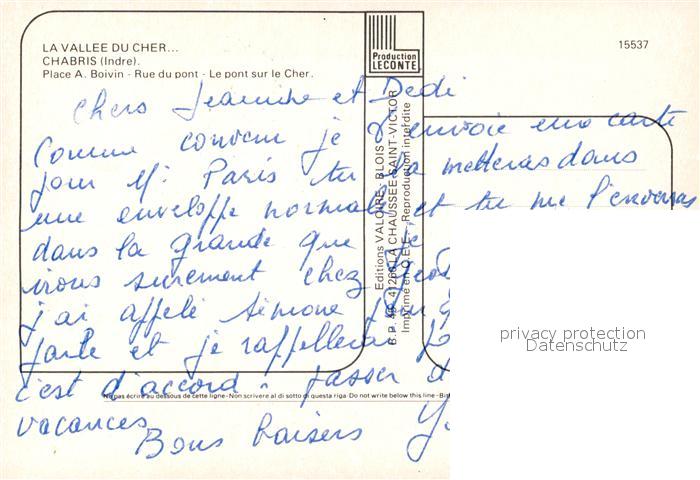 LA VALLEE DU CHER...
CHABRIS (Indre).
Place A. Boivin - Rue du pont - Le pont sur le Cher.
Production
LECONTE
15537
Chers Jeannine et Dédi
Comme convenu je t'envoie une carte
pour Mr Paris tu la metteras dans
une enveloppe normale et tu me l'enverras
dans la grande que je
irons surement chez
j'ai appelé Simone pour
parte et je rappellerai
c'est d'accord. passer
vacances
Bons baisers
Editions VALOIRE - BLOIS
LA CHAUSSEE SAINT-VICTOR
Imprimé en C.E.E. - Reproduction interdite
Ne pas écrire au dessous de cette ligne - Non scrivere al di sotto di questa riga - Do not write below this line
privacy protection
Datenschutz